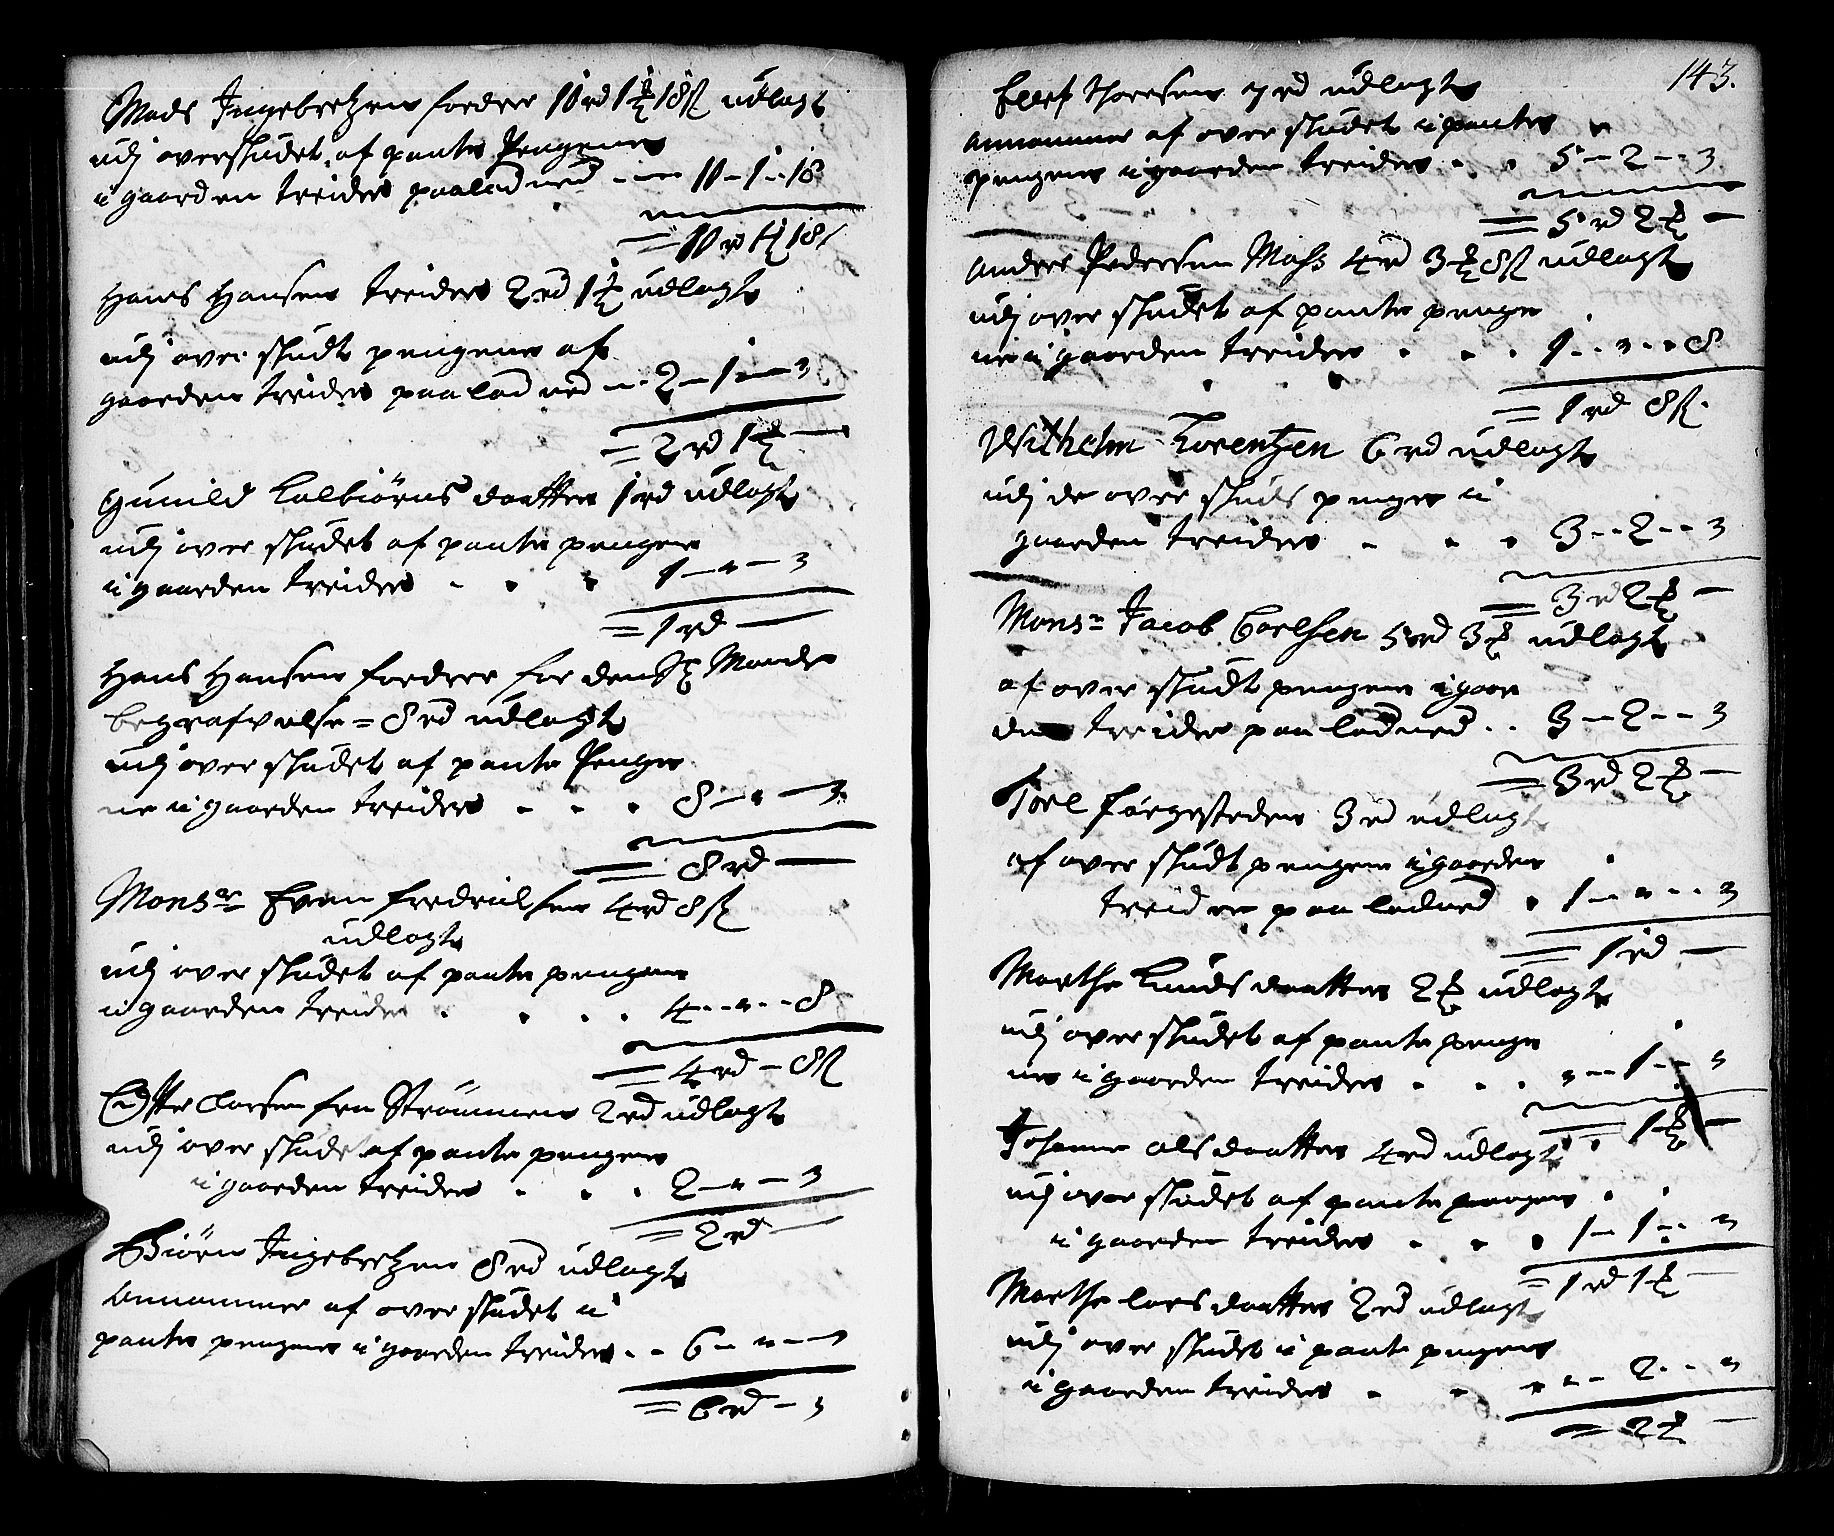 Mads Ingebretzen fordrer 10 rd 1 ȣ 18 ß udlagt
udj overskudet af pante Pengene
i gaarden treider paalod ned 10 - 1 - 18
= 10 rd 1 ȣ 18 ß
Hans Hansen treider 2 rd 1 ȣ udlagt
udj over skudt pengene af
gaarden treider paalod ned 2 - 1 - "
= 2 rd 1 ȣ -
Gunild Kolbiørns daatter 1 rd udlagt
udj over skudet af pante pengene
i gaarden treider 1 - " - "
= 1 rd -
Hans Hansen fordrer for den Sl Mands
begrafvelse = 8 rd udlagt
udj over skudet af pante Penge
ne i gaarden treider 8 - " - "
= 8 rd -
Monsr Even fredrichsen 4 rd 8 ß
udlagt
udj over skudet af pante pengene
i gaarden treider 4 - " - 8
= 4 rd - 8 ß
Otte Clorsen fra Strømmen 2 rd udlagt
udj over skudet af pante pengene
i gaarden treider 2 - " - "
= 2 rd -
Biørn Ingebretzen 8 rd udlagt
Annammer af over skudet i
pante pengene i gaarden treider 6 - " - "
= 6 rd - "
143.
Ellef Thoresen 7 rd udlagt
annammer af over skudet i pante
pengene i gaarden treider 5 - 2 - "
= 5 rd 2 ȣ -
Anders Pedersen Moss 4 rd 3 ȣ 8 ß udlagt
udj over skudet af pante penge
ne i gaarden treider 1 - " - 8
= 1 rd 8 ß
Wilhelm Lorentzen 6 rd udlagt
udj de over skuds penger i
gaarden treider 3 - 2 - "
= 3 rd 2 ȣ -
Monsr Jacob Carlsen 5 rd 3 ȣ udlagt
af over skudt pengene i gaar
den treider paa lod ned 3 - 2 - "
= 3 rd 2 ȣ -
Torl færgesteden 3 rd udlagt
af over skudt pengene i gaarden
treider paa lod ned 1 - " - "
= 1 rd -
Marthe Knuds daatter 2 ȣ udlagt
udj over skudet af pante penge
ne i gaarden treider " - 1 - "
= 1 ȣ -
Johanne ols daatter 4 rd udlagt
udj over skudet af pante pengene
i gaarden treider 1 - 1 - "
= 1 rd 1 ȣ -
Marthe lars daatter 2 rd udlagt
udj over skudet i pante pengene
i gaarden treider " - 2 - "
= 2 ȣ -